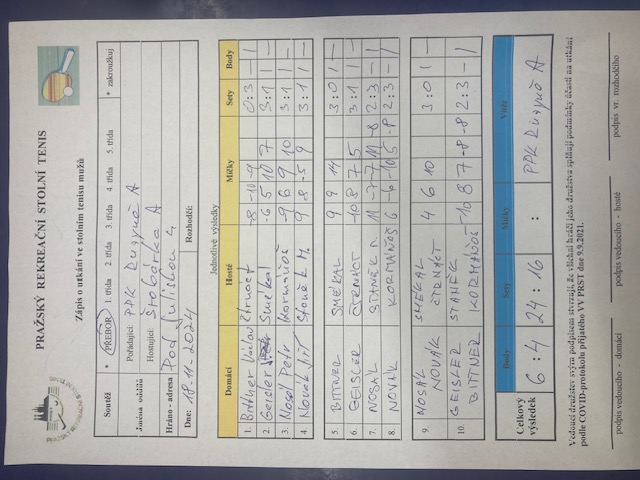 PRAŽSKÝ REKREAČNÍ STOLNÍ TENIS
Zápis o utkání ve stolním tenisu mužů
Soutěž * PŘEBOR 1. třída 2. třída 3. třída 4. třída 5. třída * zakroužkuj
Jména oddílů Pořádající: PPK Ďurgně A
Hostující: Šrobárka A
Hráno - adresa Pod Juliskou 4
Dne: 18.11.2024 Rozhodčí:
Jednotlivé výsledky
Domácí Hosté Míčky Sety Body
1. Bittner Václav Čtrnáct -8 -10 -9 0:3 - 1
2. Geisler Smékal -6 5 10 7 3:1 1 -
3. Nosál Petr Kormaňoš -9 6 9 10 3:1 1 -
4. Novák Vít Staněk M. 9 8 -5 9 3:1 1 -
5. BITTNER SMÉKAL 9 9 14 3:0 1 -
6. GEISLER ČTRNÁCT -10 8 7 5 3:1 1 -
7. NOSÁL STANĚK M. 11 -7 -7 11 -8 2:3 - 1
8. NOVÁK KORMAŇOŠ 6 -6 -10 5 -8 2:3 - 1
9. NOSÁL SMÉKAL
NOVÁK ČTRNÁCT 4 6 10 3:0 1 -
10. GEISLER STANĚK
BITTNER KORMAŇOŠ -10 8 7 -8 -8 2:3 - 1
Celkový výsledek Body Sety Míčky Vítěz
6:4 24:16 : PPK Ďurgně A
Vedoucí družstev svým podpisem stvrzují, že všichni hráči jeho družstva splňují podmínky účasti na utkání
podle COVID-protokolu přijatého VV PRST dne 9.9.2021.
podpis vedoucího - domácí podpis vedoucího - hosté podpis vr. rozhodčího